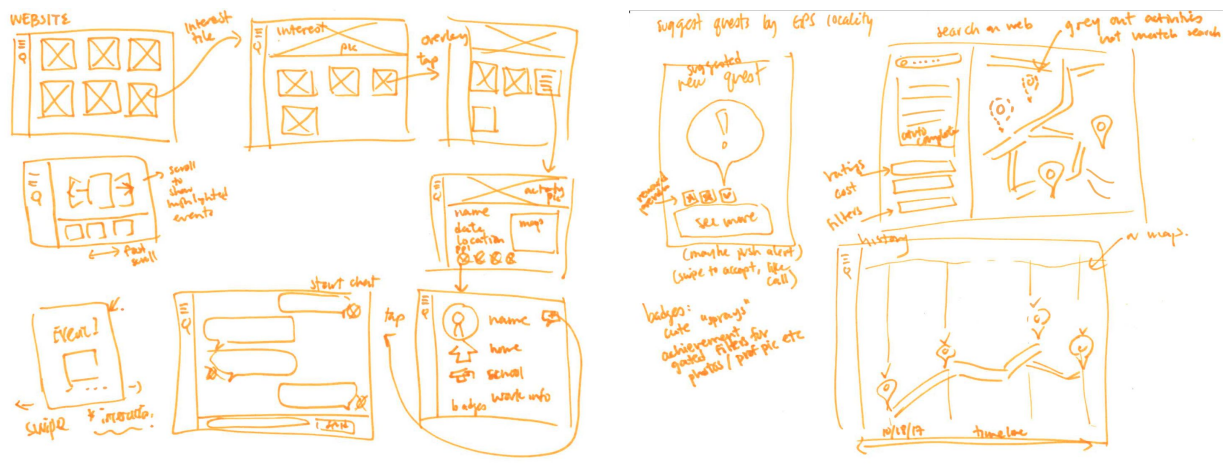 WEBSITE
interest
tile
interest
pic
overlay
tap
scroll
to
show
highlighted
events
fast
scroll
activity
pic
name
date
location
ppl
maps
start chat
tap
name
home
school
work info
badges
swipe
suggest quests by GPS locality
suggested
new quest
!
see more
(maybe push alert)
(swipe to accept, like
call)
badges:
cute "sprays"
achievement
gated filters for
photos / prof pic etc
search on web
grey out activities
not match search
auto
complete
ratings
cost
filters
history
maps.
10/18/17
timeline